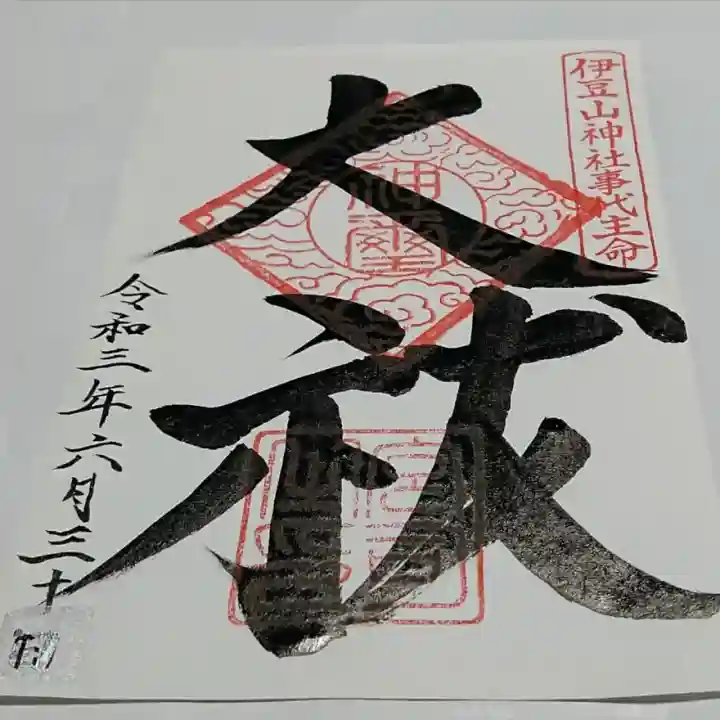 伊豆山神社事代主命
大祓
神璽
令和三年六月三十